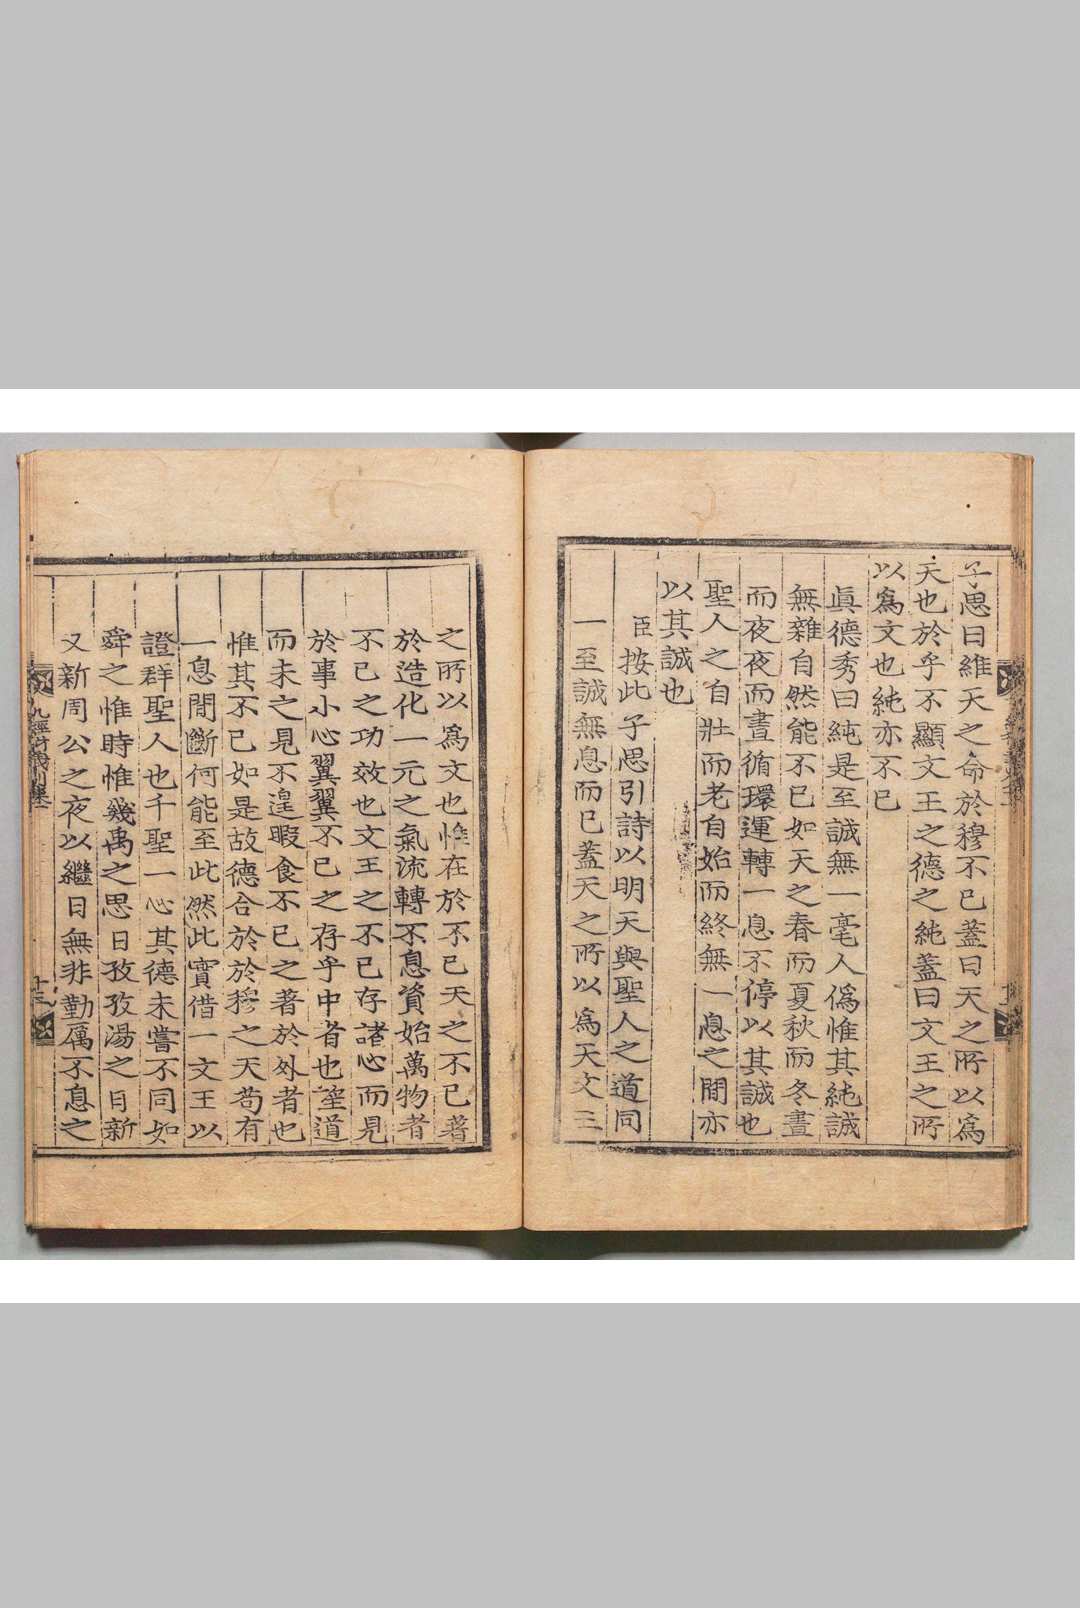 子思曰維天之命於穆不已蓋曰天之所以爲
天也於乎不顯文王之德之純蓋曰文王之所
以爲文也純亦不已
眞德秀曰純是至誠無一毫人僞惟其純誠
無雜自然能不已如天之春而夏秋而冬晝
而夜夜而晝循環運轉一息不停以其誠也
聖人之自壯而老自始而終無一息之間亦
以其誠也
臣按此子思引詩以明天與聖人之道同
一至誠無息而已蓋天之所以爲天文王
之所以爲文也惟在於不已天之不已著
於造化一元之氣流轉不息資始萬物者
不已之功效也文王之不已存諸心而見
於事小心翼翼不已之存乎中者也望道
而未之見不遑暇食不已之著於外者也
惟其不已如是故德合於於穆之天苟有
一息間斷何能至此然此實借一文王以
證群聖人也千聖一心其德未嘗不同如
舜之惟時惟幾禹之思日孜孜湯之日新
又新周公之夜以繼日無非勤厲不息之
九經衍義別集